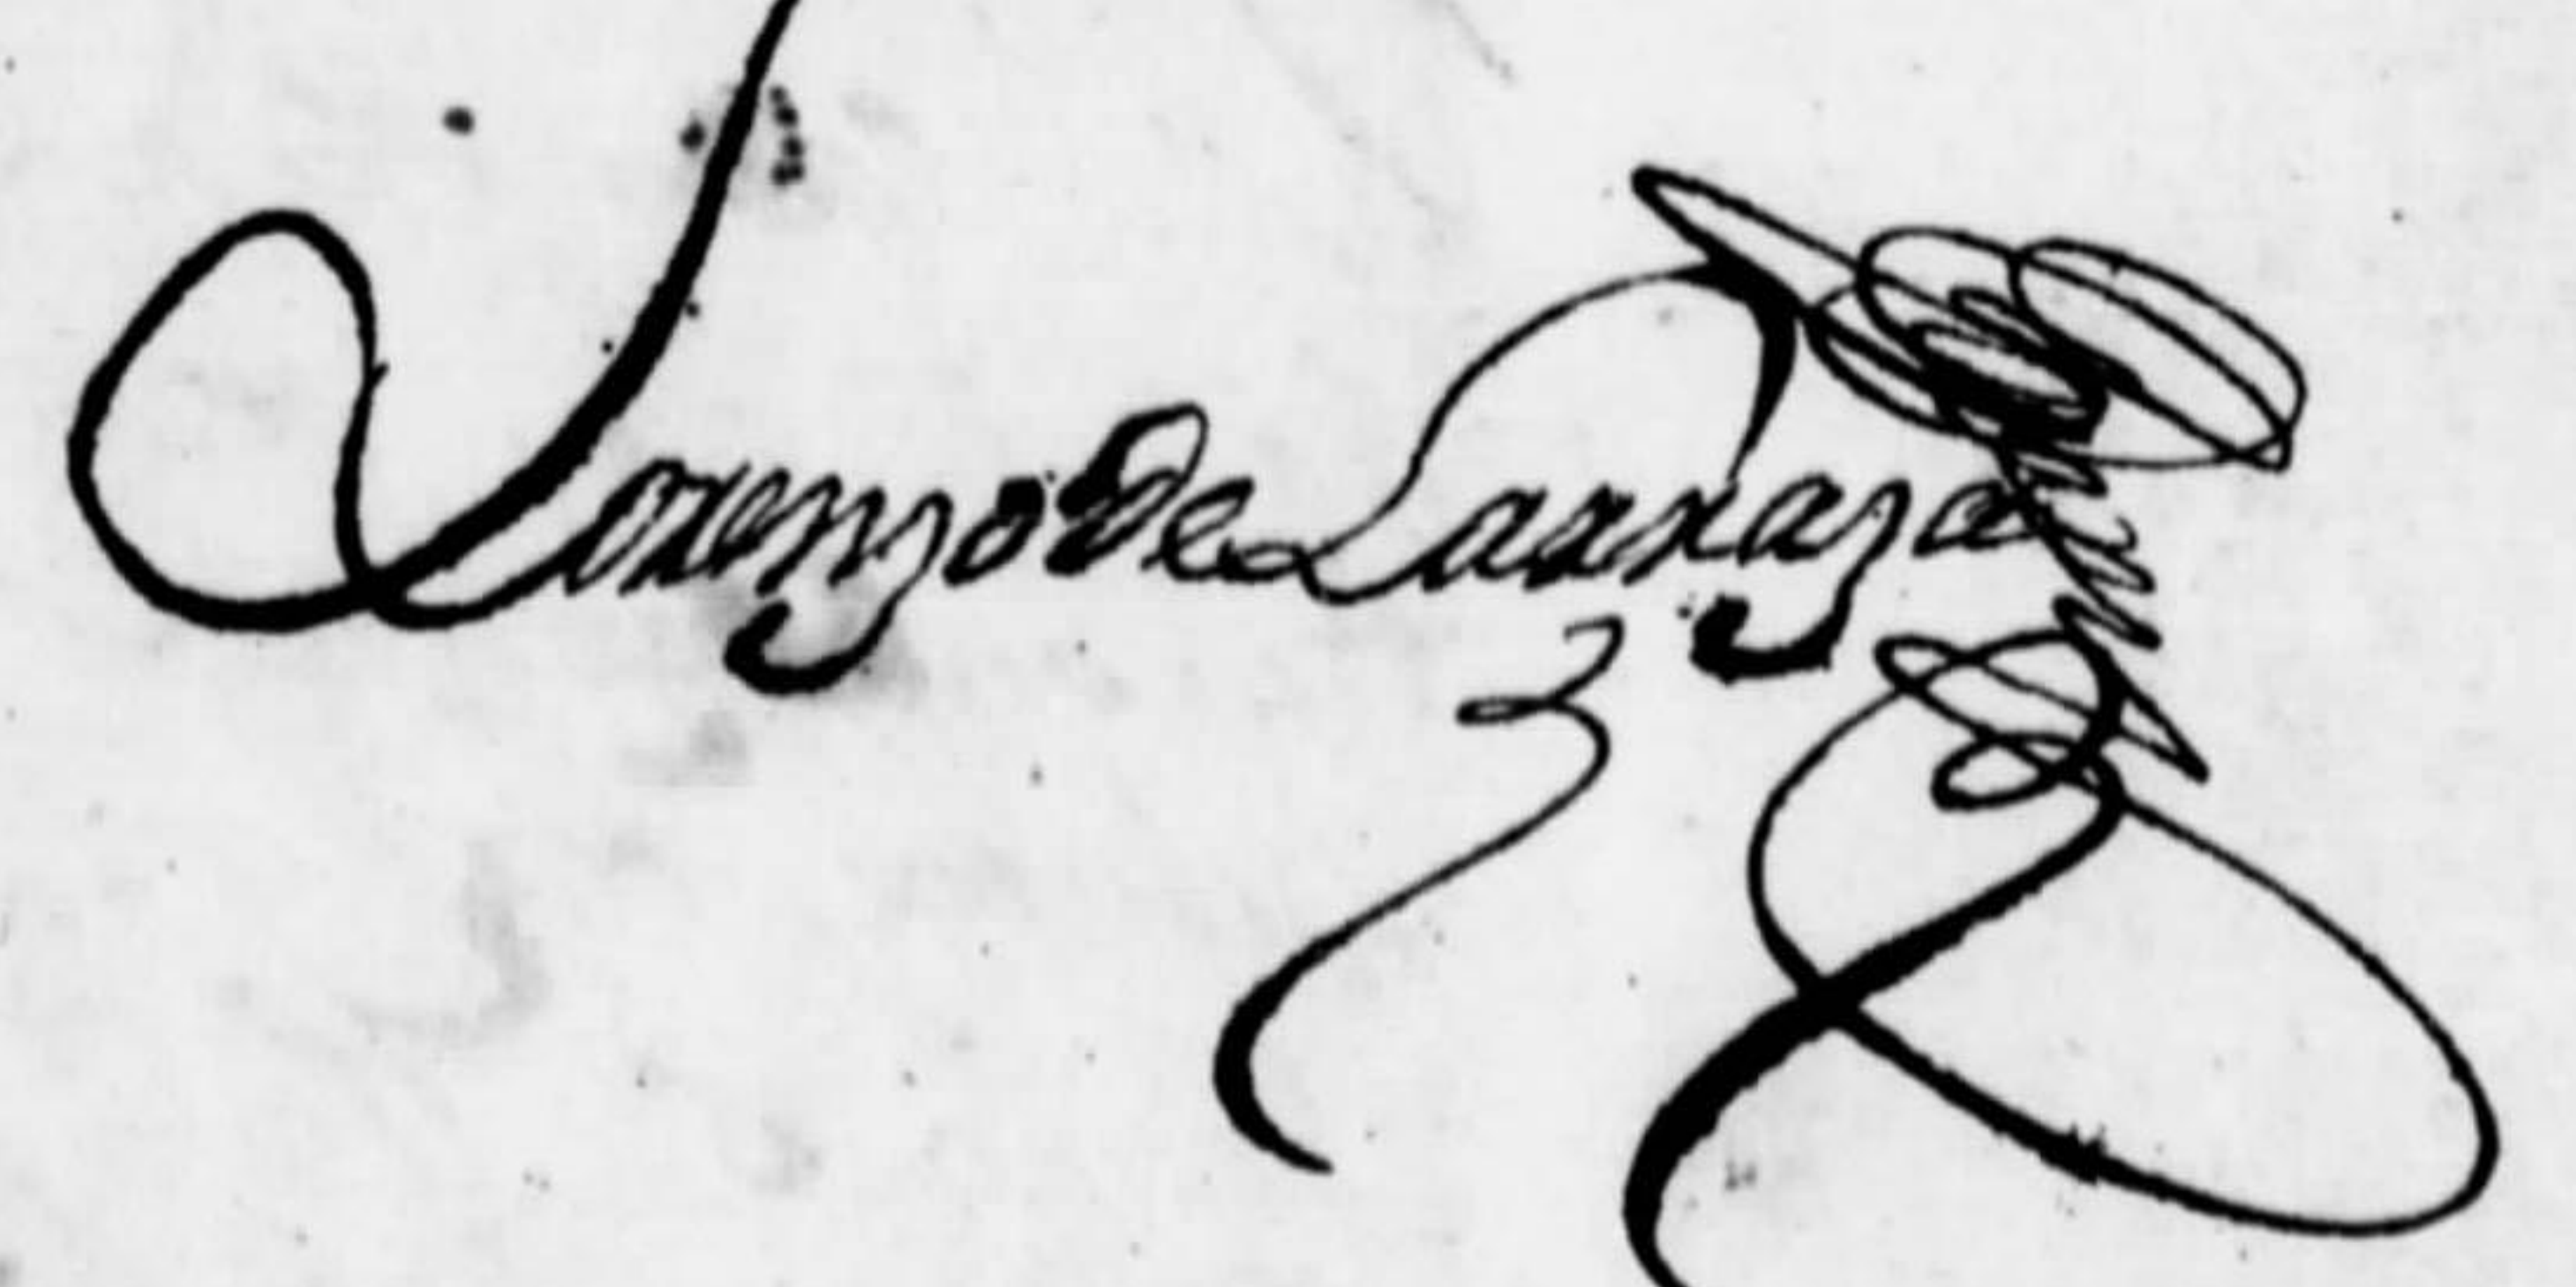 Lorenzo de Larraza